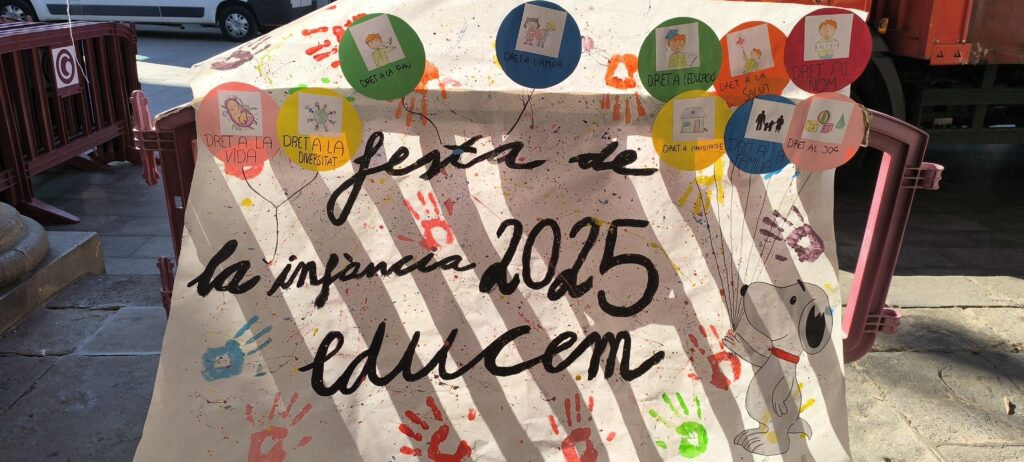 DRET A LA PAU
DRET A L'AMOR
DRET A L'EDUCACIÓ
DRET A LA
SALUT
DRET AL
NOM
DRET A LA
VIDA
DRET A LA
DIVERSITAT
DRET A L'HABITATGE
DRET A LA
FAMÍLIA
DRET AL JOC
festa de
la infància 2025
educem